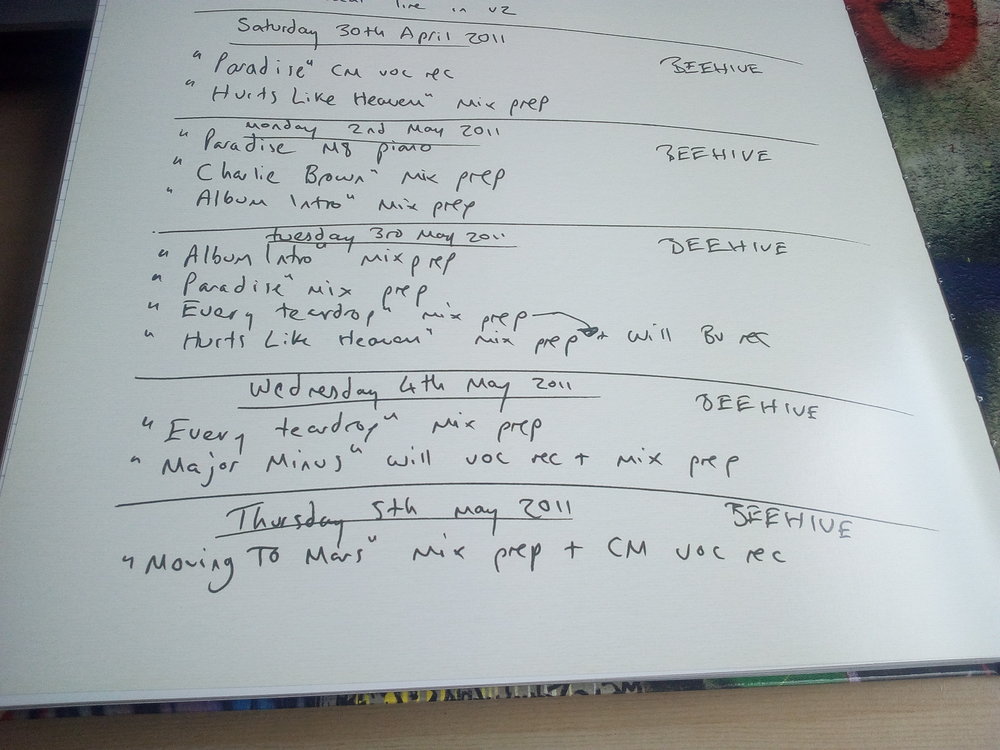 line in v2
Saturday 30th April 2011 BEEHIVE
"Paradise" CM voc rec
"Hurts Like Heaven" mix prep
monday 2nd may 2011 BEEHIVE
"Paradise M8 piano
"Charlie Brown" mix prep
"Album Intro" mix prep
tuesday 3rd May 2011 BEEHIVE
"Album Intro" mix prep
"Paradise" mix prep
"Every teardrop" mix prep
"Hurts Like Heaven" mix prep + Will BV rec
Wednesday 4th May 2011 BEEHIVE
"Every teardrop" mix prep
"Major Minus" will voc rec + mix prep
Thursday 5th may 2011 BEEHIVE
"Moving To Mars" mix prep + CM voc rec